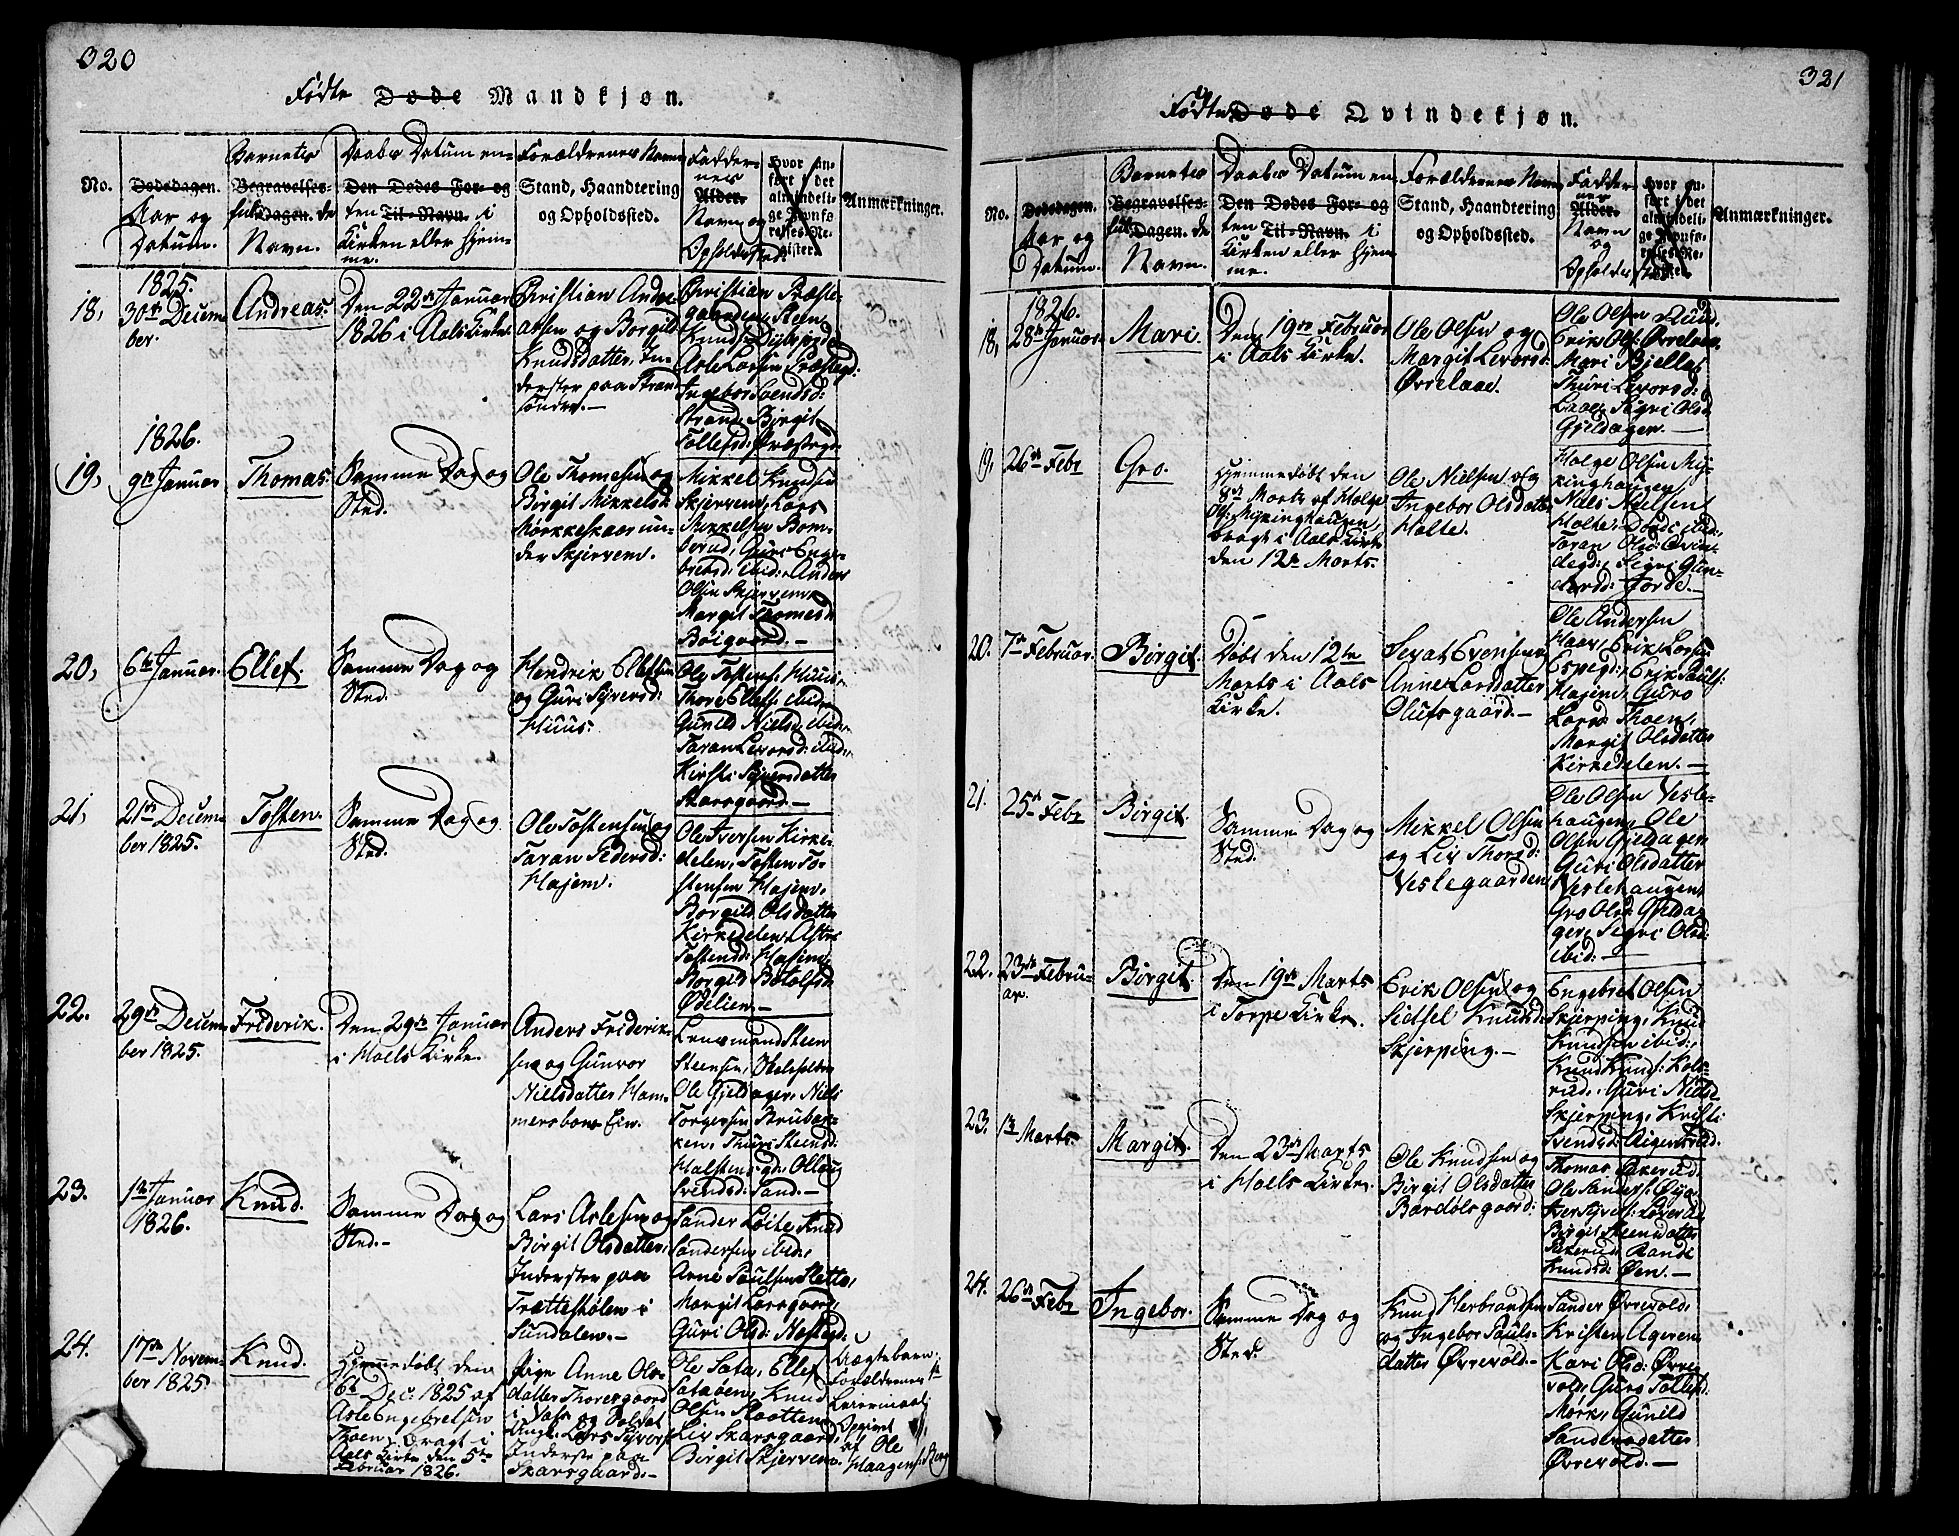 320
Fødte Døde Mandkjøn.
No.
Dødsdagen.
Aar og
Datum.
Barnetes
Begravelses-
Dagen. de
Navn.
Daabs Datum en-
Den Dødes For- og
ten Til-Navn i
Kirken eller Hjem-
me.
Forældrenes Navn
Stand, Haandtering
og Opholdssted.
Fadder-
nes
Alder.
Navn og
Opholdssted.
Hvor an-
ført i det
almindeli-
ge Jevnfø-
relses-Re-
gister.
Anmærkninger.
18,
1825.
30te Decem-
ber.
Andreas.
Den 22de Januar
1826 i Aals Kirke.
Christian Andre-
asen og Borgild
Knudsdatter, In-
derster paa Stran-
Christian Præste-
gaarden, Steen
Asle Larsen Præstegd:
Ingebor Svendsd:
Strand, Birgit
Tollefsd: Præstegd.
19,
1826.
9de Januar
Thomas.
Samme Dag og
Sted.
Ole Thomesen og
Birgit Mikkelsd:
Mørkeskaar un-
der Skjervem.
Mikkel Knudsen
Skjervem, Lars
Mikkelsen Bom-
berud, Guri Enge-
bretsd: ibid:, Anders
Olsen Skjervem,
Margit Thomesd:
Bøigaard.—
20,
6te Januar.
Ellef.
Samme Dag og
Sted.
Hendrik Ellefsen
og Guri Syversd:
Huus:
Ole Tostens: Huus,
Thore Ellefs: ibid:,
Gunild Nielsd: ibid:,
Taran Levorsd: ibid:,
Kirsti Syversdatter
Skarsgaard.—
21,
21de Decem-
ber 1825.
Tosten.
Samme Dag og
Sted.
Ole Tostensen og
Taran Pedersd:
Hajem.
Ole Iversen Kirke-
delen, Tosten To-
stensen Hajem,
Borgild Olsdatter
Kirkedelen, Astri
Tostensd: Hajem,
Borgild Botolfsd:
Ødelien.—
22.
29de Decem-
ber 1825.
Friderik.
Den 29de Januar
i Hoels Kirke.
Anders Friderik-
sen og Gunvor
Nielsdatter Ham-
mersbøen Eie.
Lensmand Steen
Steensen,
Ole Gjeldager, Niels
Torgersen Brubak-
ken, Thuri Steensd:
Halstensgd: Ollaug
Svendsd: Sand.—
23.
1te Januar
1826.
Knud.
Samme Dag og
Sted.—
Lars Aslesen og
Birgit Olsdatter,
Inderster paa
Trætteskølen i
Sundalen.—
Sander Løite, Knud
Sandersen ibid:,
Arne Paulsen Slette,
Margit Larsgaard,
Guri Olsd: Nestegd:
24.
17de Novem-
ber 1825
Knud.
Hjemmedøbt den
6te Dec: 1825 af
Asle Engebretsen
Thoen, bragt i
Aals Kirke den 5te
Februar 1826.
Pige Anne Ols-
datter Thoresgaard
i Vats og Soldat
Ungk: Lars Syvers:
Inderste paa
Skarsgaard.—
Ole Sata, Ellef
Sataøen, Knud
Olsen Slaatten,
Liv Skarsgaard,
Birgit Skjervem.
Uægtebarn.
Forældrenes 1ste
Leiermaal
Opgivet
af Ole
Haagens: Berg
321
Fødte Døde Qvindekjøn.
No.
Dødsdagen.
Aar og
Datum.
Barnetes
Begravelses-
Dagen. de
Navn.
Daabs Datum en-
Den Dødes For- og
ten Til-Navn i
Kirken eller Hjem-
me.
Forældrenes Navn
Stand, Haandtering
og Opholdssted.
Fadder-
nes
Alder.
Navn
og
Opholdssted.
Hvor an-
ført i det
almindeli-
ge Jevnfø-
relses-Re-
gister.
Anmærkninger.
18,
1826.
28de Januar
Mari.
Den 19de Februar
i Aals Kirke.
Ole Olsen og
Margit Levorsd:
Øvrelaae.
Ole Olsen Ruud,
Erik Ols: Øvrelaae,
Mari Bjella,
Thuri Levorsd:
Laae, Sigri Olsd:
Gjeldager.—
19,
26de Febr
Gro.
Hjemmedøbt den
8de Marts af Holge
Ols: Mykinghaugen,
bragt i Aals Kirke
den 12te Marts.
Ole Nielsen og
Ingebor Olsdatter
Holte.
Holge Olsen My-
kinghaugen,
Niels Nielsen
Holte, Dorde ibid:,
Taran Olsd: Qvin-
degd:, Sigri Gun-
dersd: Jorde.—
20.
7de Februar.
Birgit.
Døbt den 12te
Marts i Aals
Kirke.
Sevat Evensen og
Anne Larsdatter
Olufsgaard.—
Ole Andersen
Haae, Erik Larsen
Espegd:, Erik Pauls:
Hajem, Guro
Larsd: Thoen,
Margit Olsdatter
Kirkedelen.—
21.
25de Febr
Birgit.
Samme Dag og
Sted.
Mikkel Olsen
og Liv Thorsd:
Veslegaarden,
Ole Olsen Vesle-
haugen, Ole
Olsen Gjeldager,
Guri Olsdatter
Veslehaugen,
Gro Olsd: Gjelda-
ger, Sigri Olsd:
ibid:—
22.
23de Febru-
ar.
Birgit.
Den 19de Marts
i Torpe Kirke.
Erik Olsen og
Sidsel Knudsd:
Skjerping.—
Engebret Olsen
Skjerping, Knud
Knudsen ibid:,
Knud Knuds: Kols-
rud, Guri Nielsd:
Skjerping, Kristi
Svendsd: Aigersrud.
23.
1te Marts.
Margit.
Den 23de Marts
i Hoels Kirke.
Ole Knudsen og
Birgit Olsdatter
Bardølsgaard:
Thomas Sikerud,
Ole Sanders: Øye,
Birgit Steensdatter
Sikerud, Rande
Knudsd: Øen.—
24.
26de Febr
Ingebor.
Samme Dag og
Sted.
Knud Herbrandsen
og Ingebor Pauls-
datter Øvrevold.—
Sander Øvrevold,
Kristen Ageren
Kari Olsd: Øvre-
vold, Guro Tollefsd:
Mørk, Gunild
Sandersdatter
Øvrevold.—